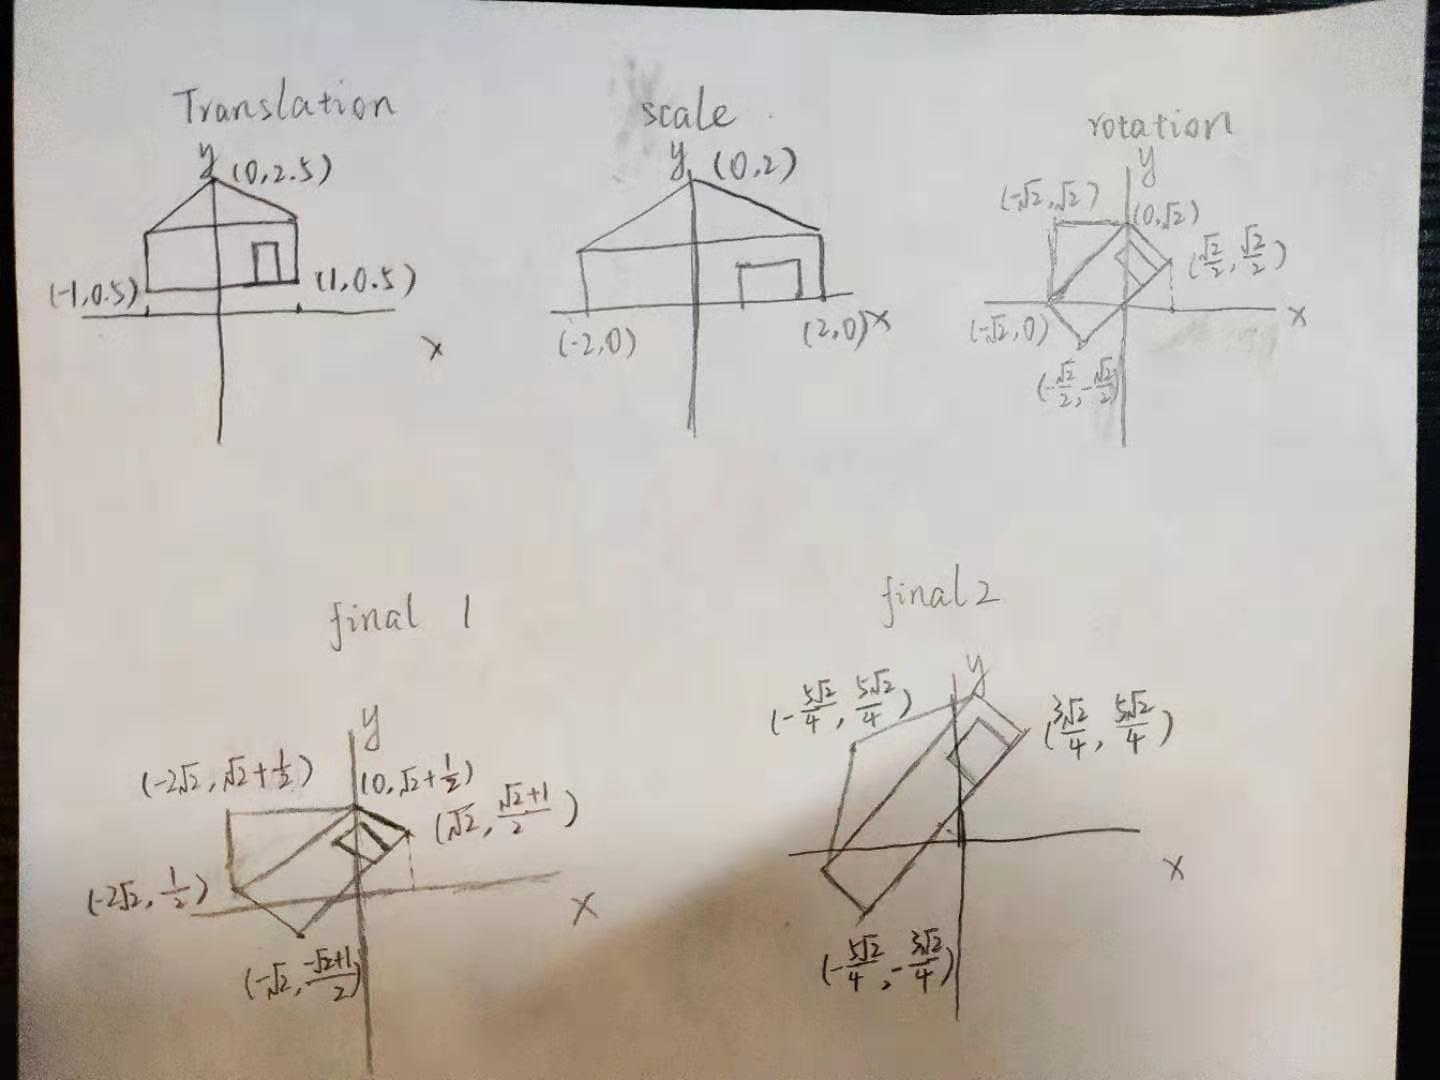 Translation
y (0,2.5)
(-1,0.5)
(1,0.5)
x
scale
y (0,2)
(-2,0)
(2,0) x
rotation
y
(-√2,√2)
(0,√2)
(√2/2, √2/2)
(-√2,0)
x
(-√2/2, -√2/2)
final 1
y
(-2√2, √2+1/2)
(0,√2+1/2)
(√2, √2+1/2)
(-2√2, 1/2)
x
(-√2, -√2+1/2)
final 2
y
(-5√2/4, 5√2/4)
(3√2/4, 5√2/4)
x
(-5√2/4, -3√2/4)